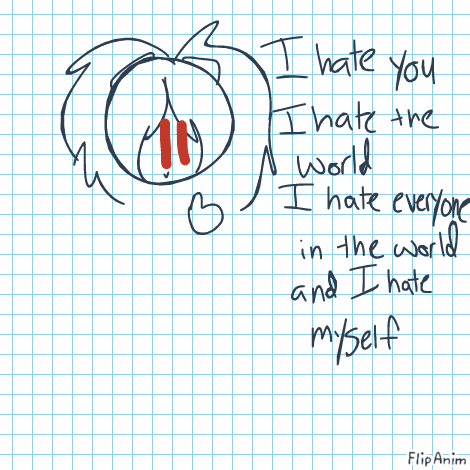 I hate you
I hate the
world
I hate everyone
in the world
and I hate
myself
FlipAnim